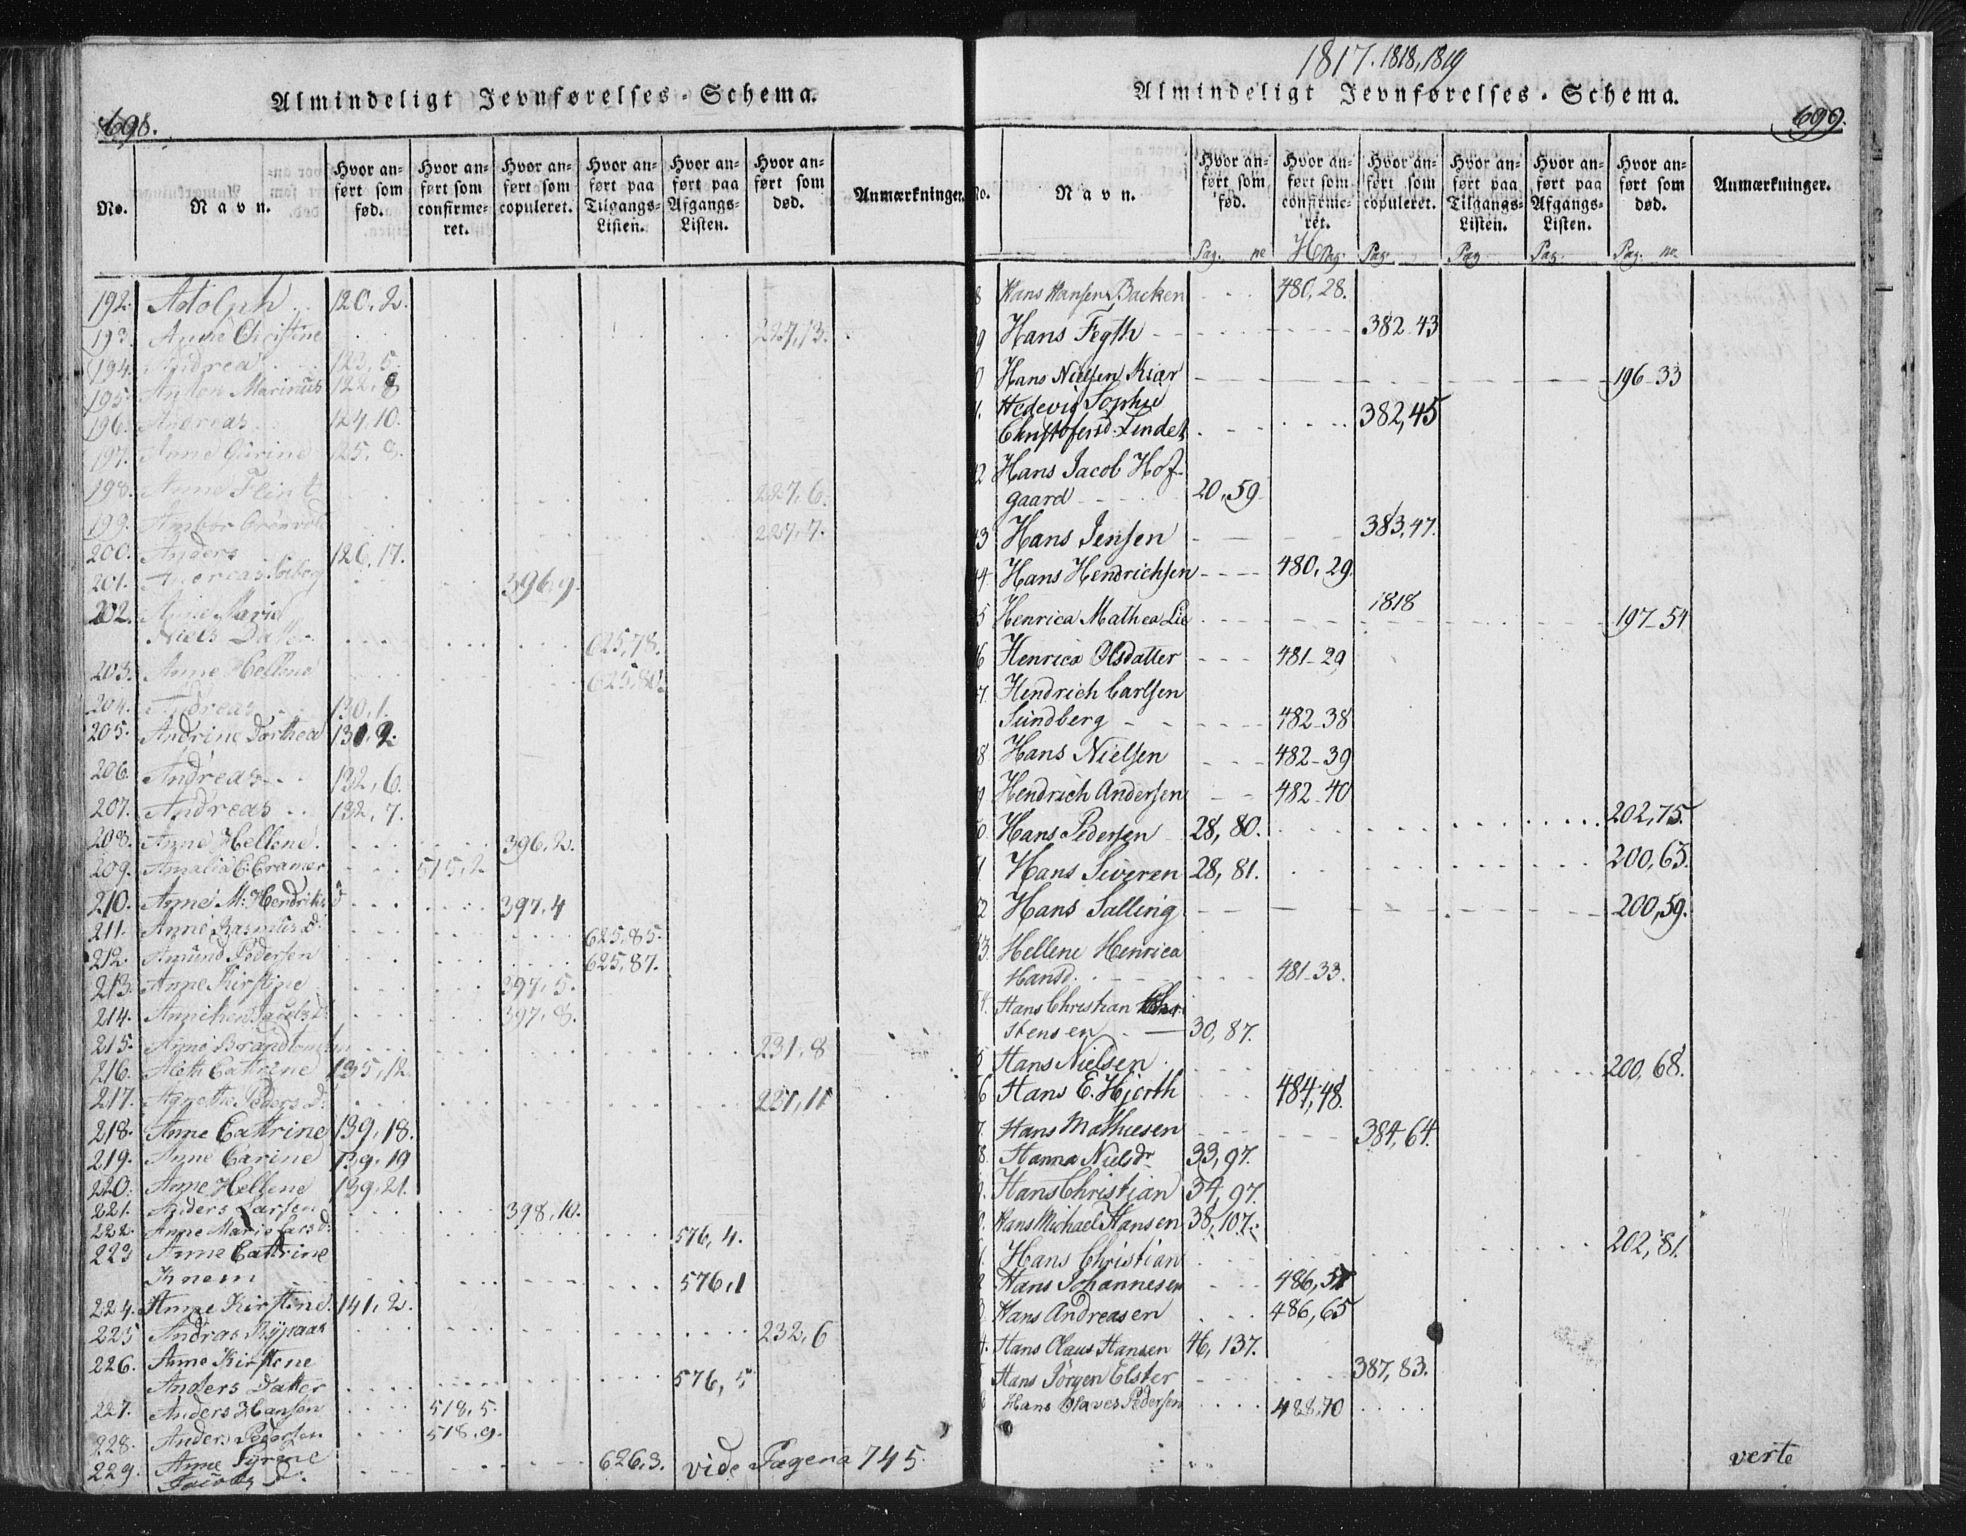 Almindeligt Jevnførelses-Schema.
698.
No.
Navn.
Hvor anført som fød.
Hvor anført som confirmeret.
Hvor anført som copuleret.
Hvor anført paa Tilgangs-Listen.
Hvor anført paa Afgangs-Listen.
Hvor anført som død.
Anmærkninger.
192. Adolph 120,2.
193. Anne Christine 227,13.
194. Andrea 123,5.
195. Anton Marinus 122,8
196. Andreas 124,10.
197. Anne Carine 125,8.
198. Anne Flint 227,6.
199. 227,7.
200. Anders 126,17.
201. Andreas 396,9.
202. Anne Marie
Niels Datter 625,78.
203. Anne Hellene 625,80.
204. Andreas 130,1.
205. Andrine Dorthea 130,2.
206. Andreas 132,6.
207. Andreas 132,7.
208. Anne Hellene. 396,2.
209. Amalia C. Cramer 515,2
210. Anne M: Hendriksd 397,4
211. Anne Rasmus d: 625,85.
212. Amund Pedersen 625,87.
213. Anne Kirstine 397,5.
214. Annichen 397,8.
215. Anne 231,8
216. Aleth Catrine 135,12
217. Agnethe Peders d: 231,11
218. Anne Cathrine 139,18.
219. Anne Carine 139,19
220. Anne Hellene 139,21.
221. Anders Larsen 398,10.
222. Anne Marie Lars d: 576,4.
223 Anne Cathrine
Knem 576,1
224. Anne Kirstine. 141,2.
225 Andras 232,6
226. Anne Kirstene
Anders Datter 576,5
227. Anders Hansen 518,5.
228. Anders Pedersen 518,9.
229. Anne
Jacobs d: 626,3. vide Pagena 745.
1817. 1818, 1819
Almindeligt Jevnførelses-Schema.
699.
No.
Navn.
Hvor anført som fød.
Hvor anført som confirmeret.
Hvor anført som copuleret.
Hvor anført paa Tilgangs-Listen.
Hvor anført paa Afgangs-Listen.
Hvor anført som død.
Anmærkninger.
Pag. no Pag. Pag. Pag Pag. Pag. no
8 Hans Hansen Backen 480,28.
9 Hans Fegth 382-43
0 Hans Nielsen Kiær 196-33
1. Hedevig Sophie
Christofersd. Lindet 382,45
2 Hans Jacob Hof-
gaard 20,59
43 Hans Jensen 383,47.
44 Hans Hendrichsen 480,29.
1818
5 Henrica Mathea Lie 197-54
6 Henrica Olsdatter 481-29
7. Hendrich Carlsen
Sundberg 482-38
8 Hans Nielsen 482-39
9 Hendrich Andersen 482-40
0. Hans Pedersen 28,80. 202,75.
1 Hans Siveren 28,81. 200,63.
2 Hans Salling 200,59.
3. Hellene Henrica
Hansd. 481-33.
4. Hans Christian Chri
stensen 30,87.
5 Hans Nielsen 200,68.
6 Hans E. Hjorth 484,48.
7. Hans Mathiesen 384,64.
8. Hanna Nielsdr 33,97.
9. Hans Christian 34,97.
0. Hans Michael Hansen 38,107.
1. Hans Christian 202,81.
2 Hans Johannesen 486,57
3. Hans Andreasen 486,65
4. Hans Claus Hansen 46,137.
5 Hans Jörgen Elster 387,83.
6 Hans Olaves Pedersen 488,70
verte